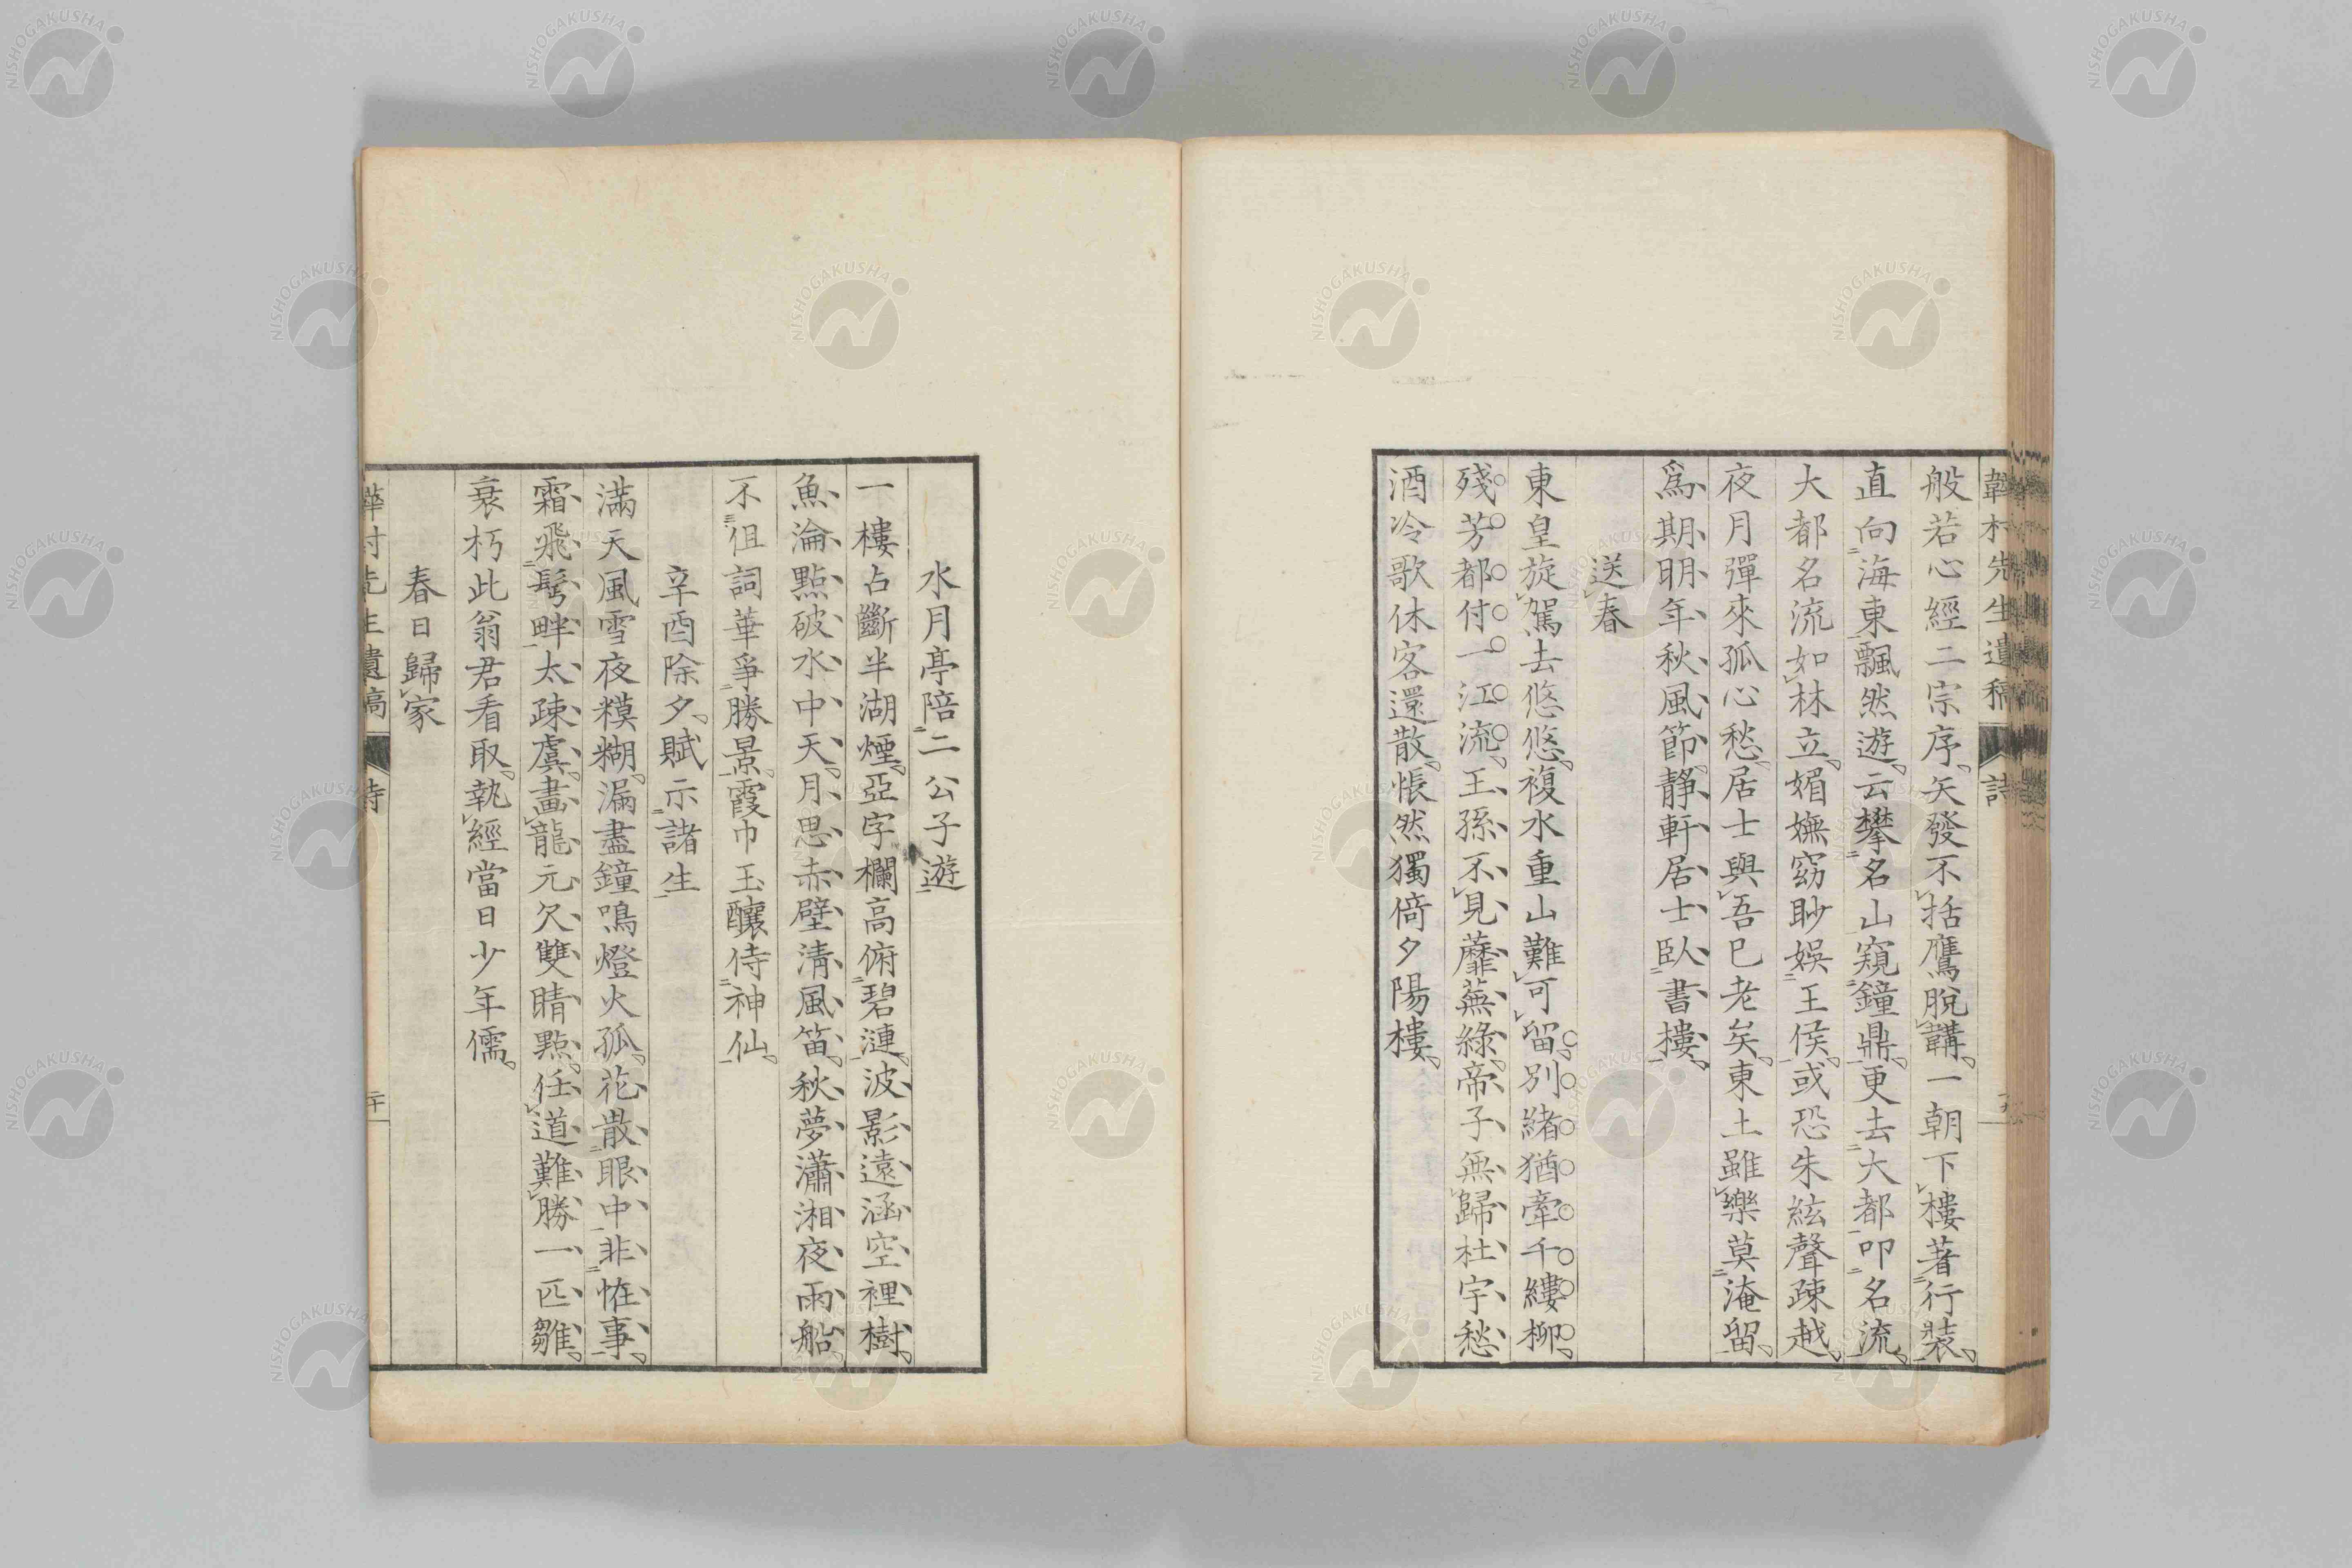 韡村先生遺稿 詩
般若心經二宗序矢發不括鷹脫韝一朝下樓著行裝
直向海東飄然遊云攀名山窺鐘鼎更去大都叩名流
大都名流如林立媚嫵窈眇娛王侯或恐朱絃聲疎越
夜月彈來孤心愁居士與吾已老矣東土雖樂莫淹留
爲期明年秋風節靜軒居士臥書樓
送春
東皇旋駕去悠悠複水重山難可留別緒猶牽千縷柳
殘芳都付一江流王孫不見蘼蕪綠帝子無歸杜宇愁
酒冷歌休客還散悵然獨倚夕陽樓
水月亭陪二公子遊
一樓占斷半湖煙亞字欄高俯碧漣波影遠涵空裡樹
魚淪點破水中天月思赤壁清風笛秋夢瀟湘夜雨船
不但詞華爭勝景霞巾玉釀侍神仙
辛酉除夕賦示諸生
滿天風雪夜糢糊漏盡鐘鳴燈火孤花散眼中非恠事
霜飛鬂畔太疎虞畫龍元欠雙睛點任道難勝一匹雛
衰朽此翁君看取執經當日少年儒
春日歸家
韡村先生遺稿 詩 二十
NISHOGAKUSHA
NISHOGAKUSHA
NISHOGAKUSHA
NISHOGAKUSHA
NISHOGAKUSHA
NISHOGAKUSHA
NISHOGAKUSHA
NISHOGAKUSHA
NISHOGAKUSHA
NISHOGAKUSHA
NISHOGAKUSHA
NISHOGAKUSHA
NISHOGAKUSHA